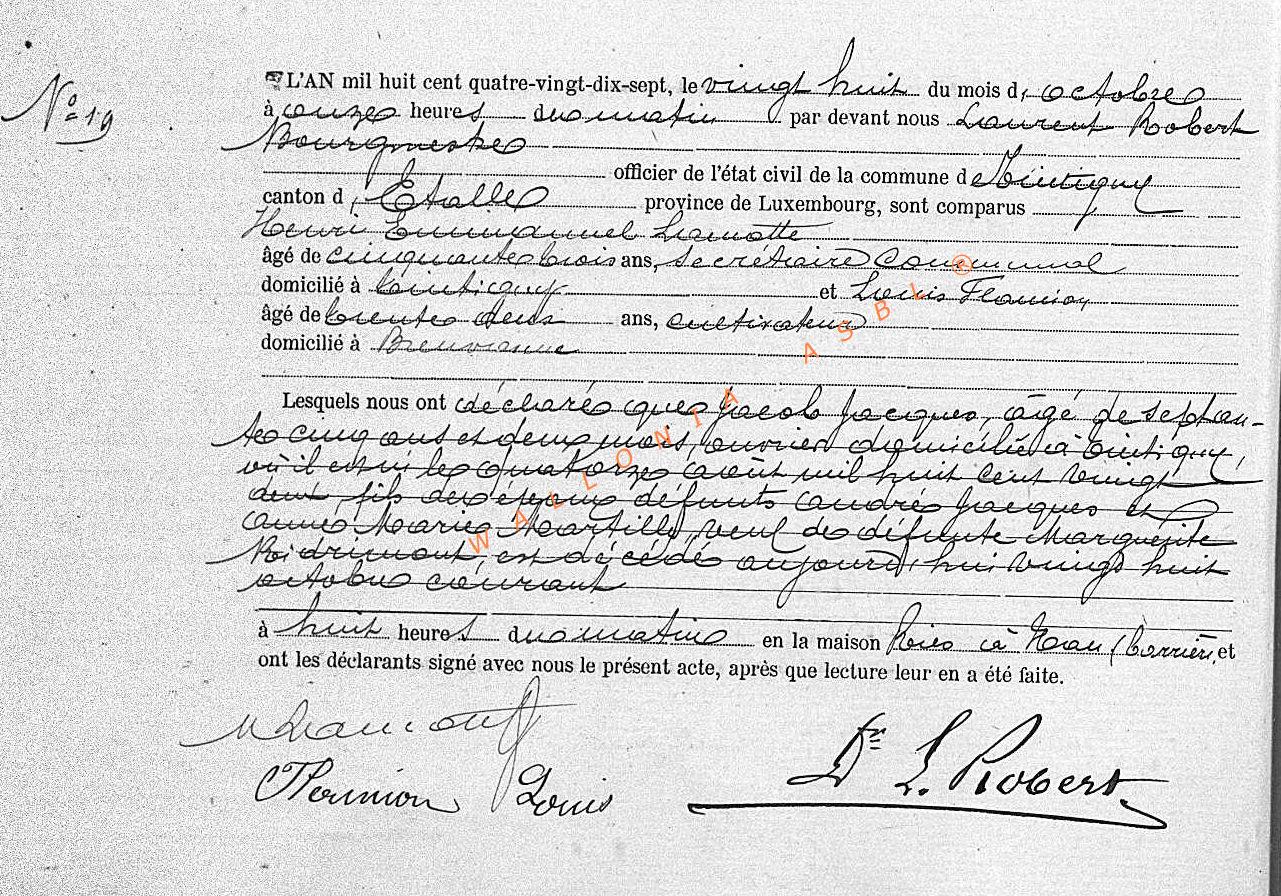 N° 19
L'AN mil huit cent quatre-vingt-dix-sept, le vingt huit du mois d' octobre
à onze heures du matin par devant nous Laurent Robert
Bourgmestre
officier de l'état civil de la commune de Tintigny
canton d' Etalle province de Luxembourg, sont comparus
Henri Emmanuel Lamotte
âgé de cinquante trois ans, secrétaire communal
domicilié à Tintigny et Louis Flamion
âgé de trente deux ans, cultivateur
domicilié à Breuvanne
Lesquels nous ont déclaré que Jacob Jacques, âgé de septan-
te cinq ans et deux mois, ouvrier domicilié à Tintigny,
où il est né le quatorze août mil huit cent vingt
deux fils des époux défunts André Jacques et
Anne Marie Martilly, veuf de défunte Marguerite
Ridrimont, est décédé aujourd'hui vingt huit
octobre courant
à huit heures du matin en la maison sise à Han (barrière, et
ont les déclarants signé avec nous le présent acte, après que lecture leur en a été faite.
Lamotte
Flamion Louis
Dr L. Robert
WALLONIA ASBL ®